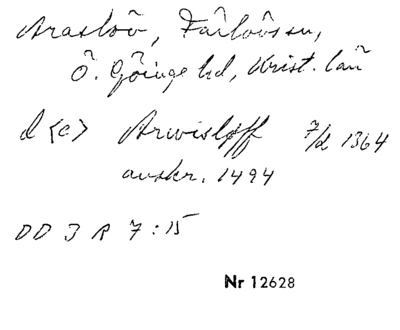 Araslöv, Färlövs sn,
Ö. Göinge hd, Krist. län
d <c> Arwisløff 7/2 1364
avskr. 1494
DD 3 R 7:15
Nr 12628